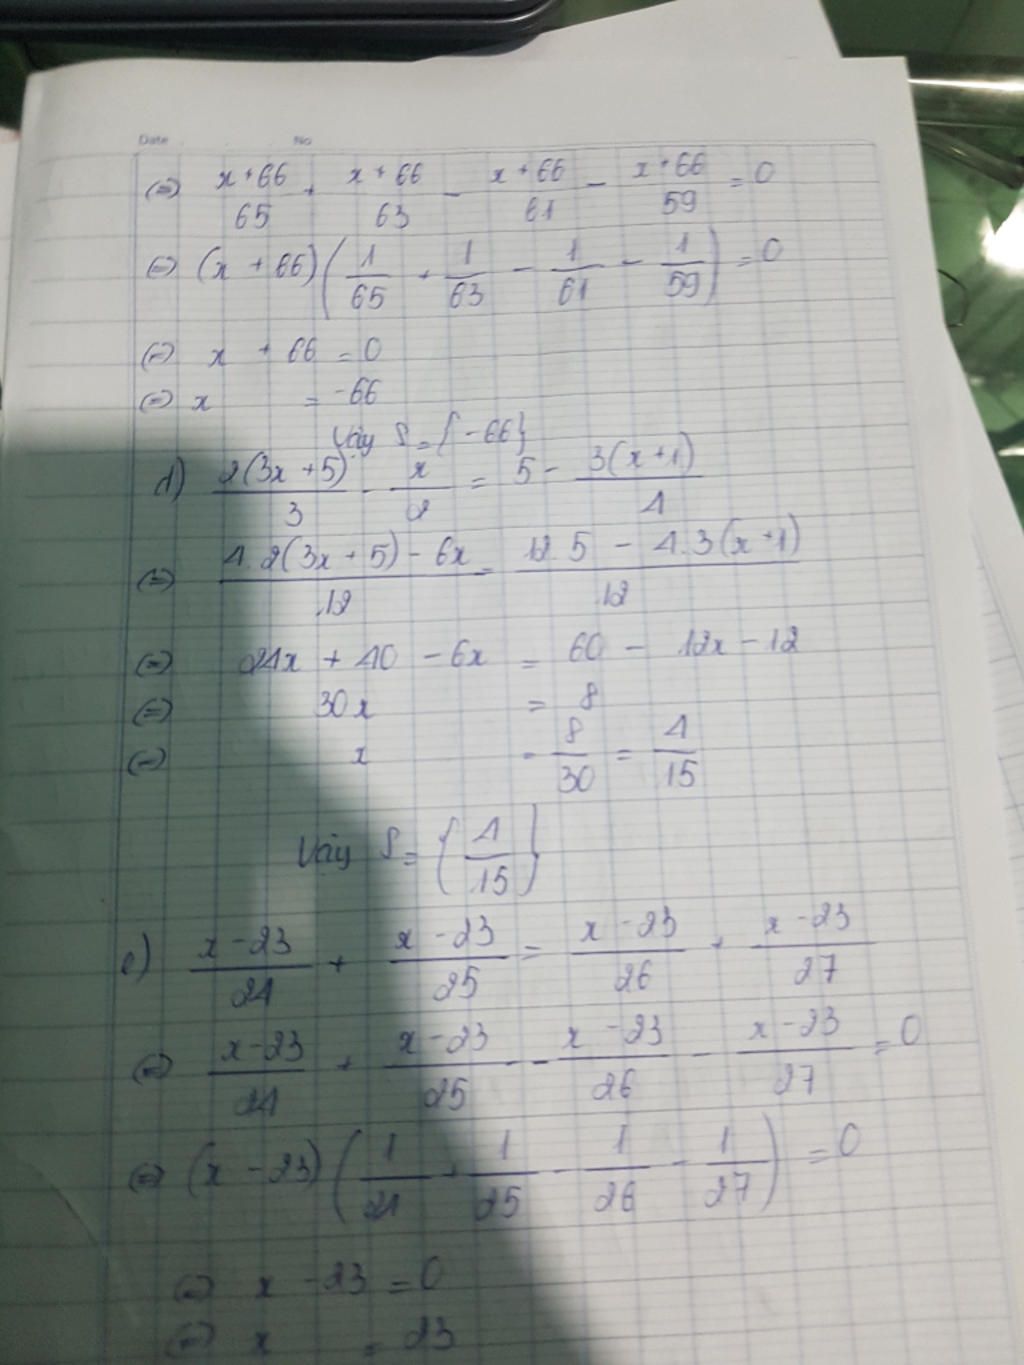 Date No
(=) x+66/65 + x+66/63 - x+66/61 - x+66/59 = 0
(=) (x + 66)(1/65 + 1/63 - 1/61 - 1/59) = 0
(=) x + 66 = 0
(=) x = -66
Vậy S = {-66}
d) 2(3x+5)/3 - x/2 = 5 - 3(x+1)/4
(=) 4.2(3x+5) - 6x/12 = 12.5 - 4.3(x+1)/12
(=) 24x + 40 - 6x = 60 - 12x - 12
(=) 30x = 8
(=) x = 8/30 = 4/15
Vậy S = {4/15}
e) x-23/24 + x-23/25 = x-23/26 + x-23/27
(=) x-23/24 + x-23/25 - x-23/26 - x-23/27 = 0
(=) (x - 23)(1/24 + 1/25 - 1/26 - 1/27) = 0
(=) x - 23 = 0
(=) x = 23